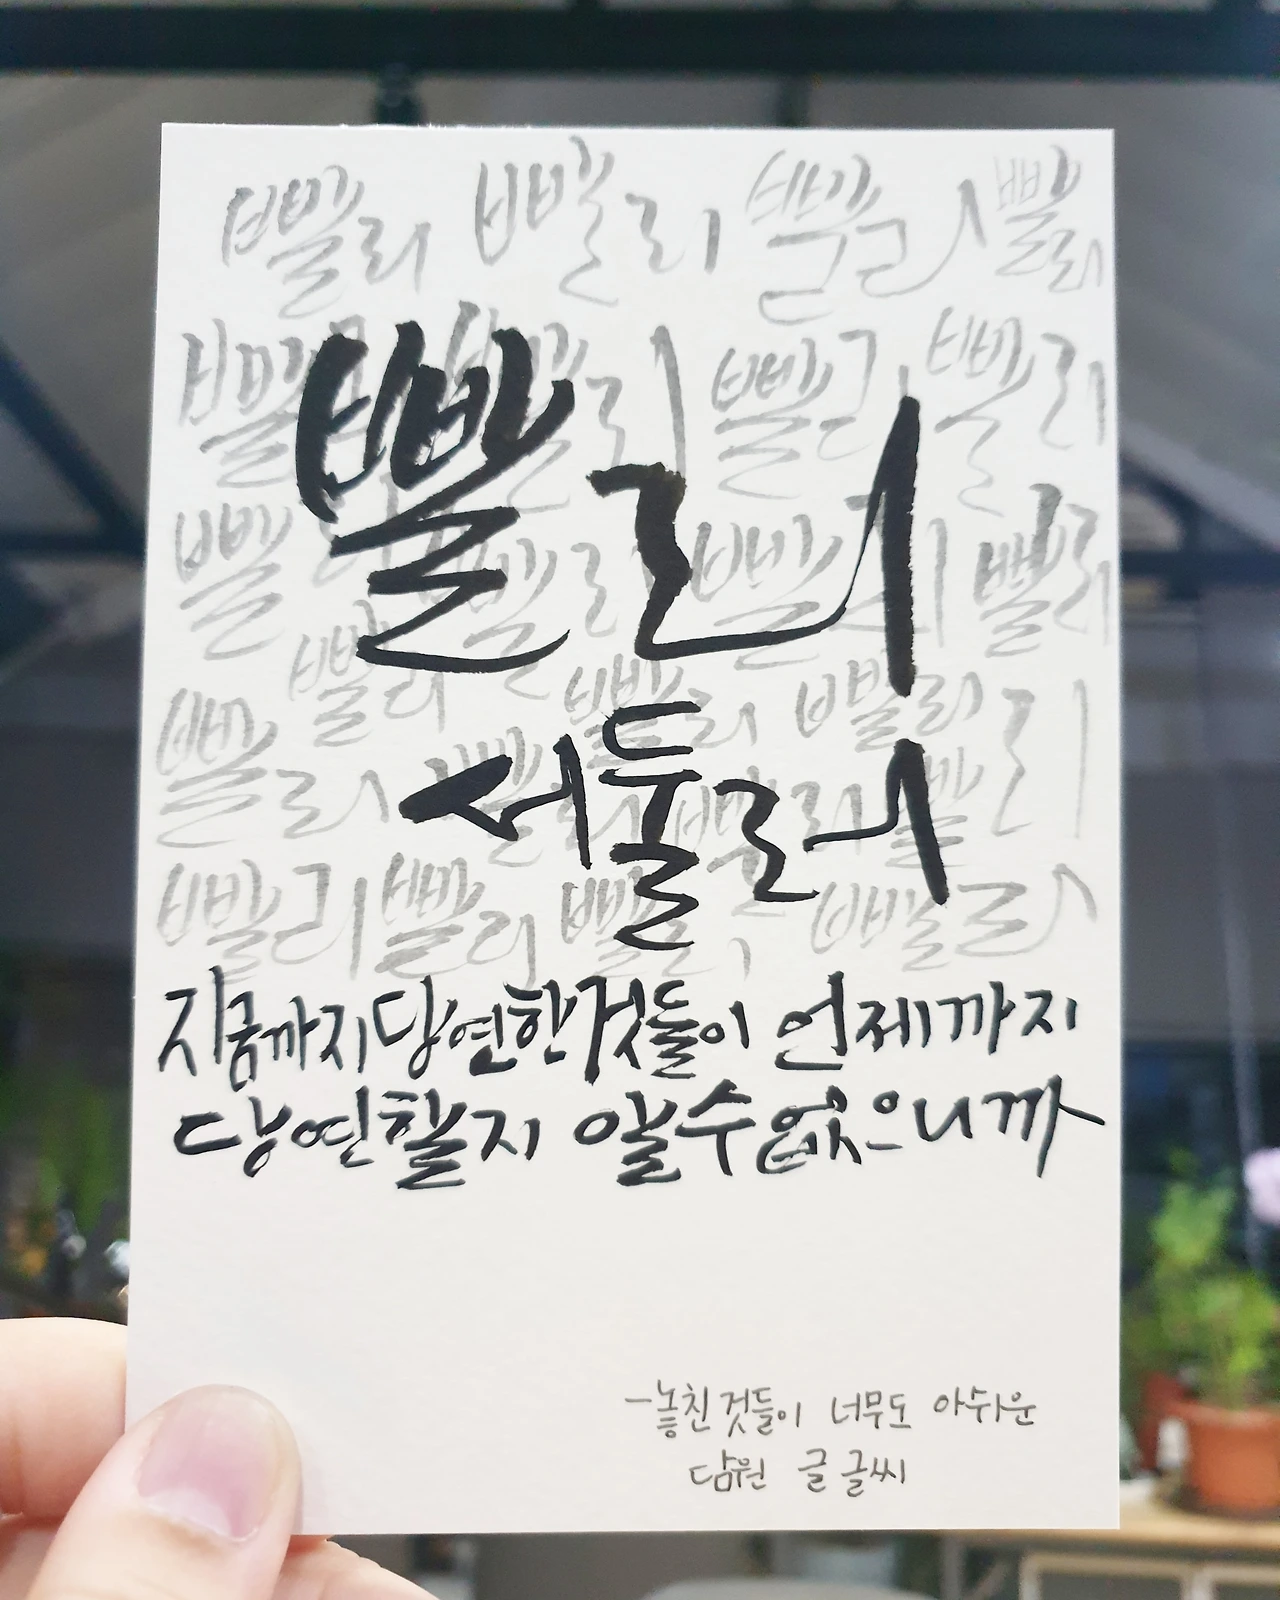 빨리 빨리 빨리 빨리
빨리 빨리 빨리 빨리
빨리
빨리 빨리 빨리 빨리
빨리 빨리 빨리
서둘러
빨리 빨리 빨리 빨리
빨리 빨리 빨리 빨리
지금까지 당연한것들이 언제까지
당연할지 알수없으니까
-놓친것들이 너무도 아쉬운
담원 글글씨